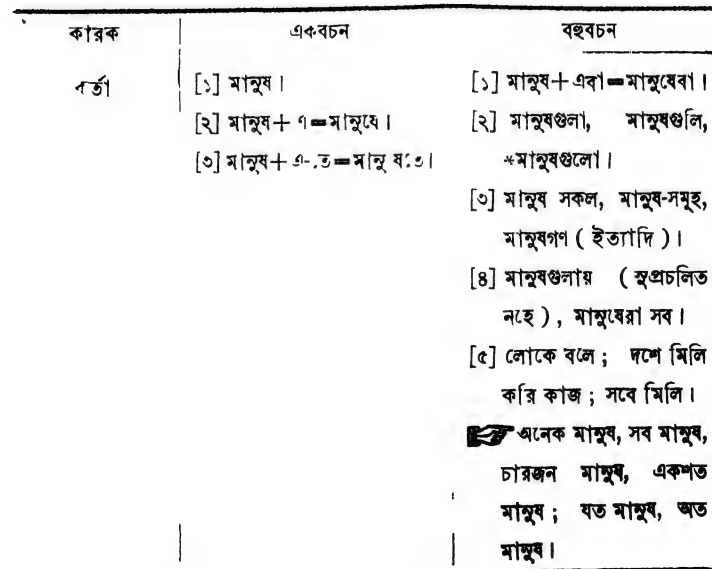 কারক একবচন বহুবচন
কর্তা
[১] মানুষ।
[২] মানুষ+এ=মানুষে।
[৩] মানুষ+এ-তে=মানুষেতে।
[১] মানুষ+এরা=মানুষেরা।
[২] মানুষগুলা, মানুষগুলি,
*মানুষগুলো।
[৩] মানুষ সকল, মানুষ-সমূহ,
মানুষগণ ( ইত্যাদি )।
[৪] মানুষগুলায় ( সুপ্রচলিত
নহে ), মানুষেরা সব।
[৫] লোকে বলে ; দশে মিলি
করি কাজ ; সবে মিলি।
☛ অনেক মানুষ, সব মানুষ,
চারজন মানুষ, একশত
মানুষ ; যত মানুষ, অত
মানুষ।